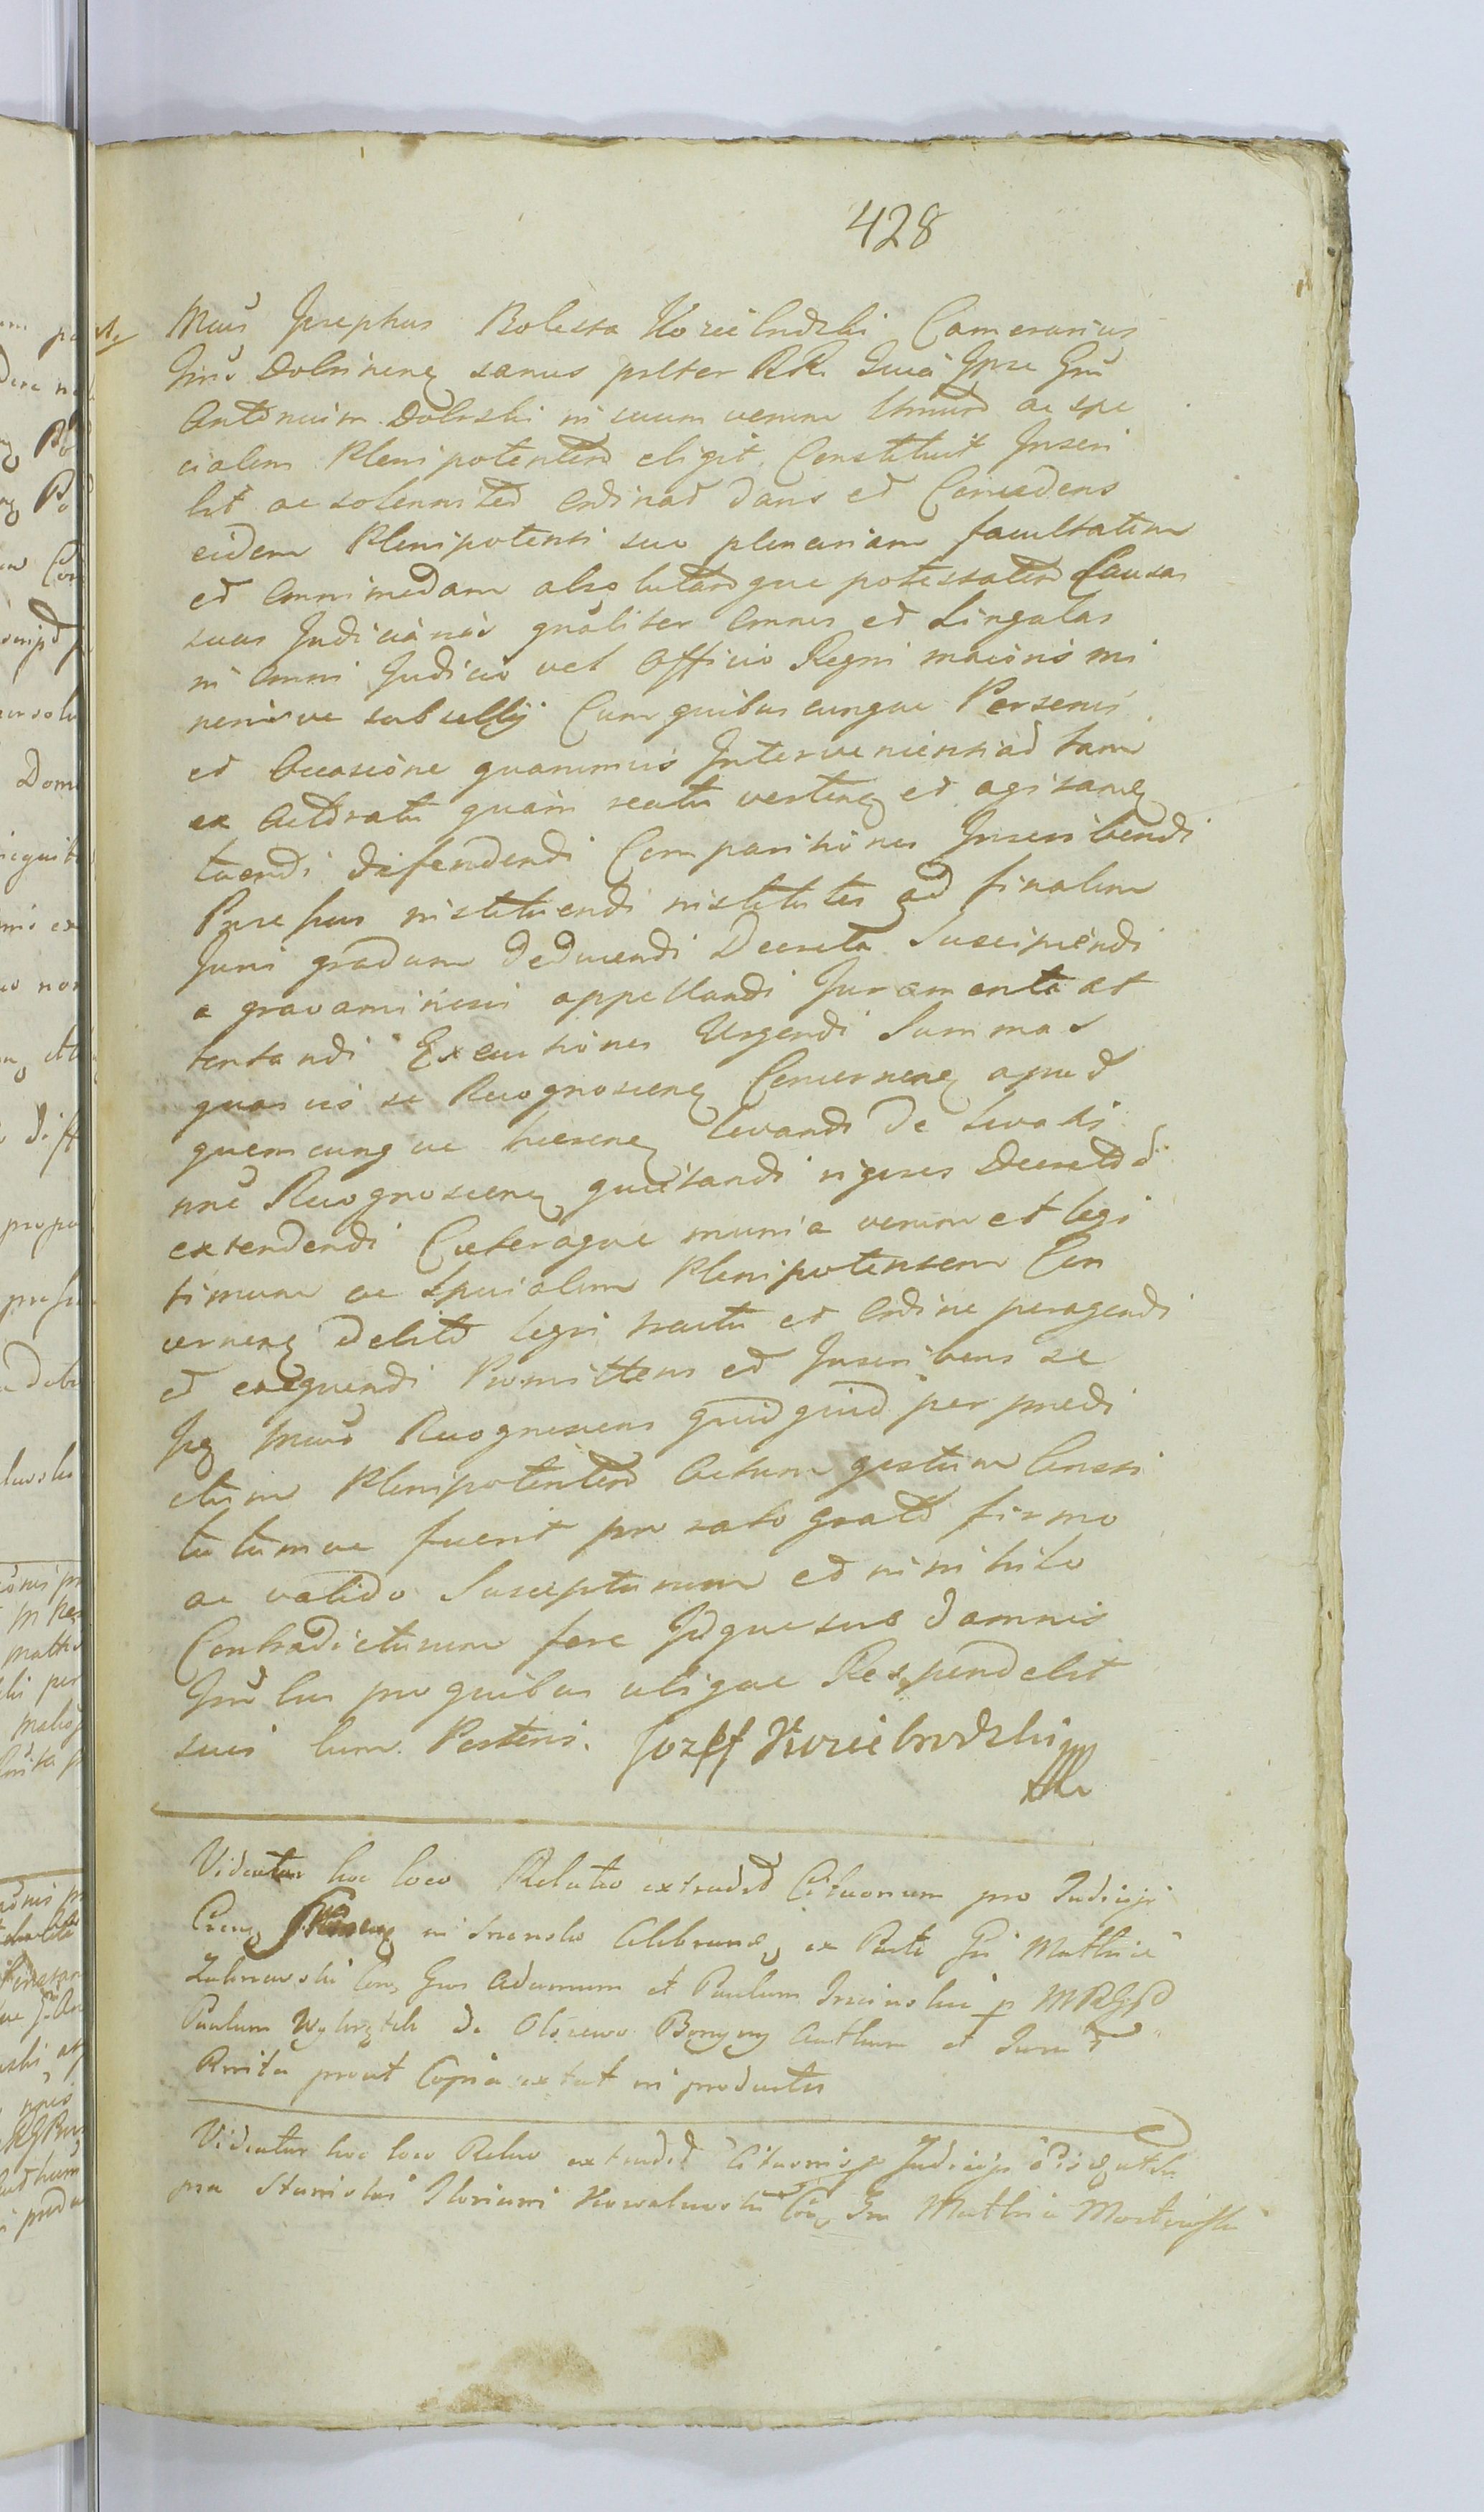 428
Mcus Josephus Bolesta Koziebrodzki Camerarius
Dobrinens sanus palter RR. Quia Ipse Gm
Antonium Dobrski in suum verum ac spe
cialem Plenipotentem eligit Constituit Inscri
bit ac solennited Ordinat dans et Concedens
eidem Plenipotenti suo plenariam facultatem
et omnimodam absolutamque potestatem Causas
suas Judiciarias gnaliter omnes et Singulas
in omni Judicio vel Officio Regni maioris mi
norisve subsellij Cum quibuscunque Personis
et Occasione quarumvis Intervenientiad tam
ex Actoratu quam reatu verten et agitan
tuendi defendendi Comparitiones Inscribendi
instituendi institutes ad finalem
Juris gradum deducendi Decreta Suscipiendi
a gravaminosis appellandi Juramenta at
tentandi Executiones Urgendi Summas
quasvis se Recognoscen Concernen apud
quemcunque levandi de levatis
Recognoscen quietandi rigores
extendendi Caeteraque munia verum et legi
timum ac Spcialem Plenipotentem Con
cernen debito legis tractu et Ordine peragendi
et exequendi Promittens et Inscribens se
Recognoscens quidquid per praedi
ctum Plenipotentem Actum gestum Consti
tutumve fuerit pro rato grato firmo
ac valido Suscepturum et in nihilo
Contradicturum fore Idque sub damnis
pro quibus ubique Respondebit
suis cum Posteris. Jozef Koziebrodzki
Videatur hoc loco Relatio extradit Cituonum pro Judicijs
in Srensko Celebran ex Parte Gi Mathiae
Gsos Adamum et Paulum
Paulum de Olszewo
prout Copia extat in productis
Videatur hoc loco Relao extradit Cituonis p Judicijs
pra Stanislai Floriani Kowalewski Mathia